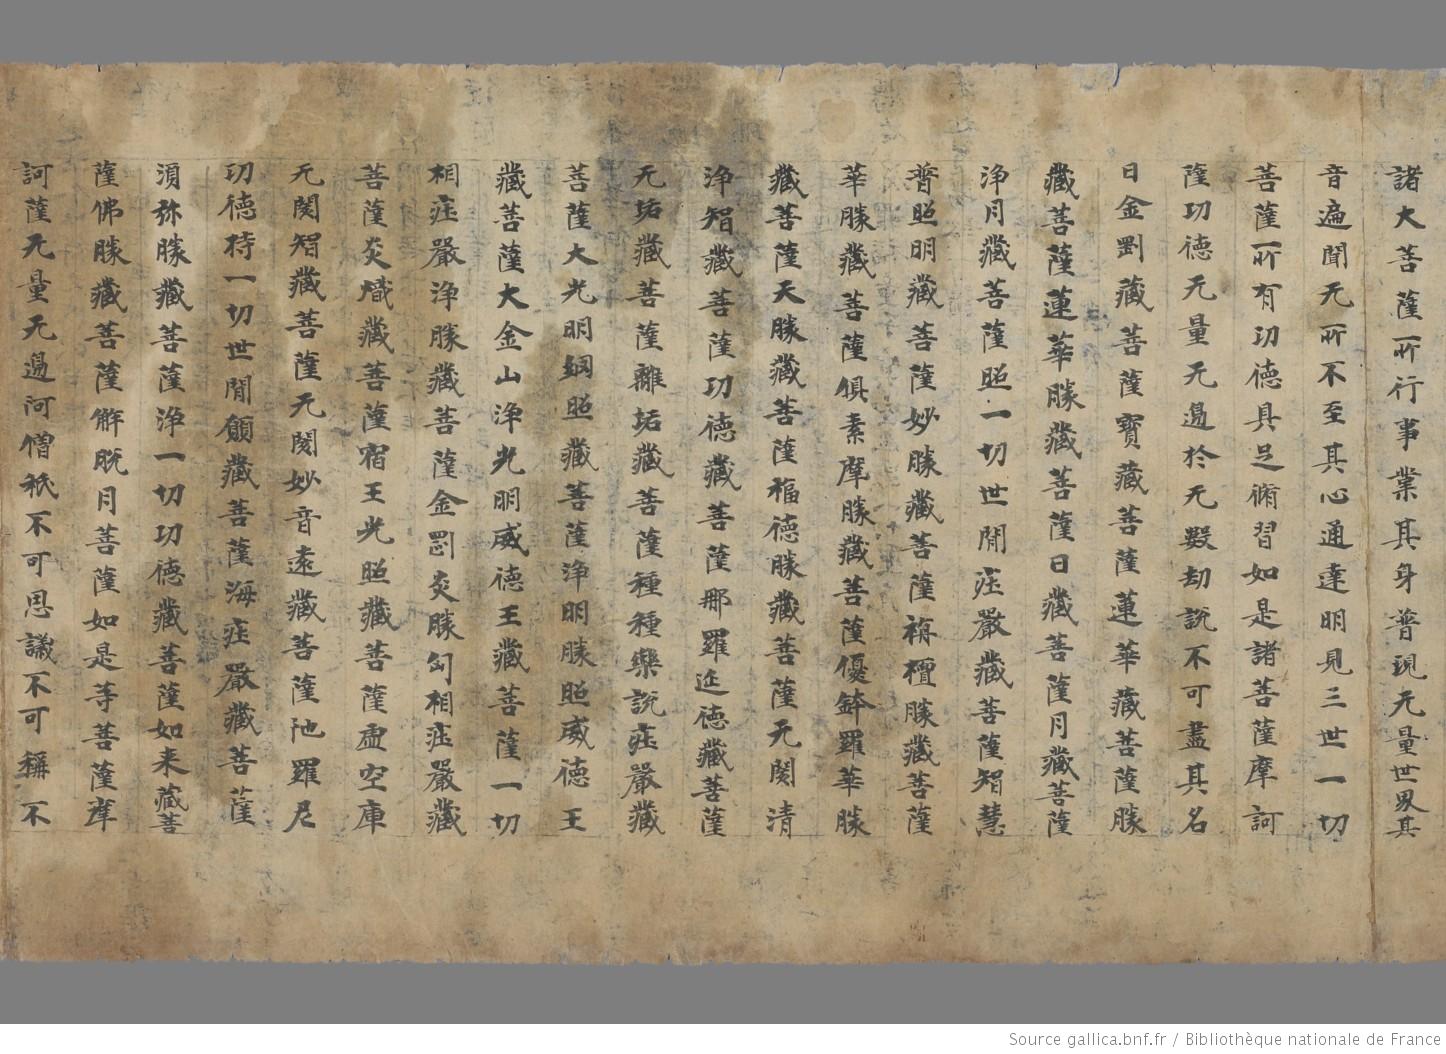 諸大菩薩所行事業其身普現无量世界其
音遍聞无所不至其心通達明見三世一切
菩薩所有功德具足脩習如是諸菩薩摩訶
薩功德无量无邊於无數劫說不可盡其名
日金剛藏菩薩寶藏菩薩蓮華藏菩薩勝
藏菩薩蓮華勝藏菩薩日藏菩薩月藏菩薩
淨月藏菩薩照一切世閒莊嚴藏菩薩智慧
普照明藏菩薩妙勝藏菩薩栴檀勝藏菩薩
華勝藏菩薩俱素摩勝藏菩薩優鉢羅華勝
藏菩薩天勝藏菩薩福德勝藏菩薩无閡清
淨智藏菩薩功德藏菩薩那羅延德藏菩薩
无垢藏菩薩離垢藏菩薩種種樂說莊嚴藏
菩薩大光明網照藏菩薩淨明勝照威德王
藏菩薩大金山淨光明威德王藏菩薩一切
相莊嚴淨勝藏菩薩金罰炎勝匈相莊嚴藏
菩薩炎熾藏菩薩宿王光照藏菩薩虛空庫
无閡智藏菩薩无閡妙音遠藏菩薩陁羅尼
功德持一切世閒願藏菩薩海莊嚴藏菩薩
湏弥勝藏菩薩淨一切功德藏菩薩如来藏菩
薩佛勝藏菩薩解脫月菩薩如是等菩薩摩
訶薩无量无邊阿僧祇不可思議不可稱不
Source gallica.bnf.fr / Bibliothèque nationale de France